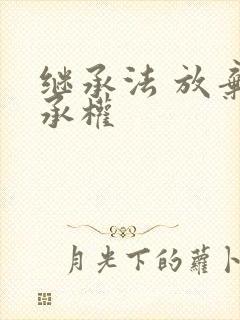 继承法 放棄
承權
月光下的蘿卜